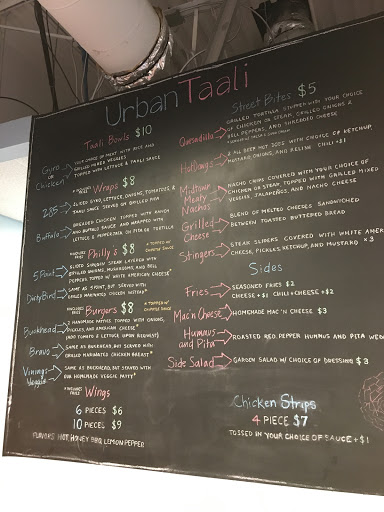 Urban Taali
Taali Bowls $10
Gyro or Chicken
YOUR CHOICE OF MEAT WITH RICE AND
GRILLED MIXED VEGGIES
TOPPED WITH LETTUCE & TAALI SAUCE
Wraps $8
285
SLICED GYRO, LETTUCE, ONIONS, TOMATOES &
TAALI SAUCE SERVED ON GRILLED PITA
Buffalo
BREADED CHICKEN TOPPED WITH RANCH
AND BUFFALO SAUCE AND WRAPPED WITH
LETTUCE & PEPPERJACK ON PITA OR TORTILLA
Philly's $8
* TOPPED W/ CHIPOTLE SAUCE
5 Point
SLICED SIRLOIN STEAK LAYERED WITH
GRILLED ONIONS, MUSHROOMS, AND BELL
PEPPERS, TOPPED W/ WHITE AMERICAN CHEESE*
Dirty Bird
SAME AS 5POINT, BUT SERVED WITH
GRILLED MARINATED CHICKEN INSTEAD*
Burgers $8
* TOPPED W/ CHIPOTLE SAUCE
Buckhead
2 HANDMADE PATTIES, TOPPED WITH ONIONS,
PICKLES, AND AMERICAN CHEESE*
(ADD TOMATO & LETTUCE UPON REQUEST)
Bravo
SAME AS BUCKHEAD, BUT SERVED WITH
GRILLED MARINATED CHICKEN BREAST*
Vinings Veggie
SAME AS BUCKHEAD, BUT SERVED WITH
OUR HOMEMADE VEGGIE PATTY*
Wings
6 PIECES $6
10 PIECES $9
FLAVORS: HOT, HONEY BBQ, LEMON PEPPER
Street Bites $5
Quesadilla
GRILLED TORTILLA STUFFED WITH YOUR CHOICE
OF CHICKEN OR STEAK, GRILLED ONIONS &
BELL PEPPERS, AND SHREDDED CHEESE
Hot Dawgs
2 ALL BEEF HOT DOGS WITH CHOICE OF KETCHUP,
MUSTARD, ONIONS, AND RELISH CHILI +$1
Midtown Meaty Nachos
NACHO CHIPS COVERED WITH YOUR CHOICE OF
CHICKEN OR STEAK, TOPPED WITH GRILLED MIXED
VEGGIES, JALAPEÑOS, AND NACHO CHEESE
Grilled Cheese
BLEND OF MELTED CHEESES SANDWICHED
BETWEEN TOASTED BUTTERED BREAD
Stingers
STEAK SLIDERS COVERED WITH WHITE AMER
CHEESE, PICKLES, KETCHUP, AND MUSTARD x3
Sides
Fries
SEASONED FRIES $2
CHEESE +$1 CHILI+CHEESE +$2
Mac n Cheese
HOMEMADE MAC 'N CHEESE $3
Hummus and Pita
ROASTED RED PEPPER HUMMUS AND PITA WED
Side Salad
GARDEN SALAD W/ CHOICE OF DRESSING $3
Chicken Strips
4 PIECE $7
TOSSED IN YOUR CHOICE OF SAUCE +$1